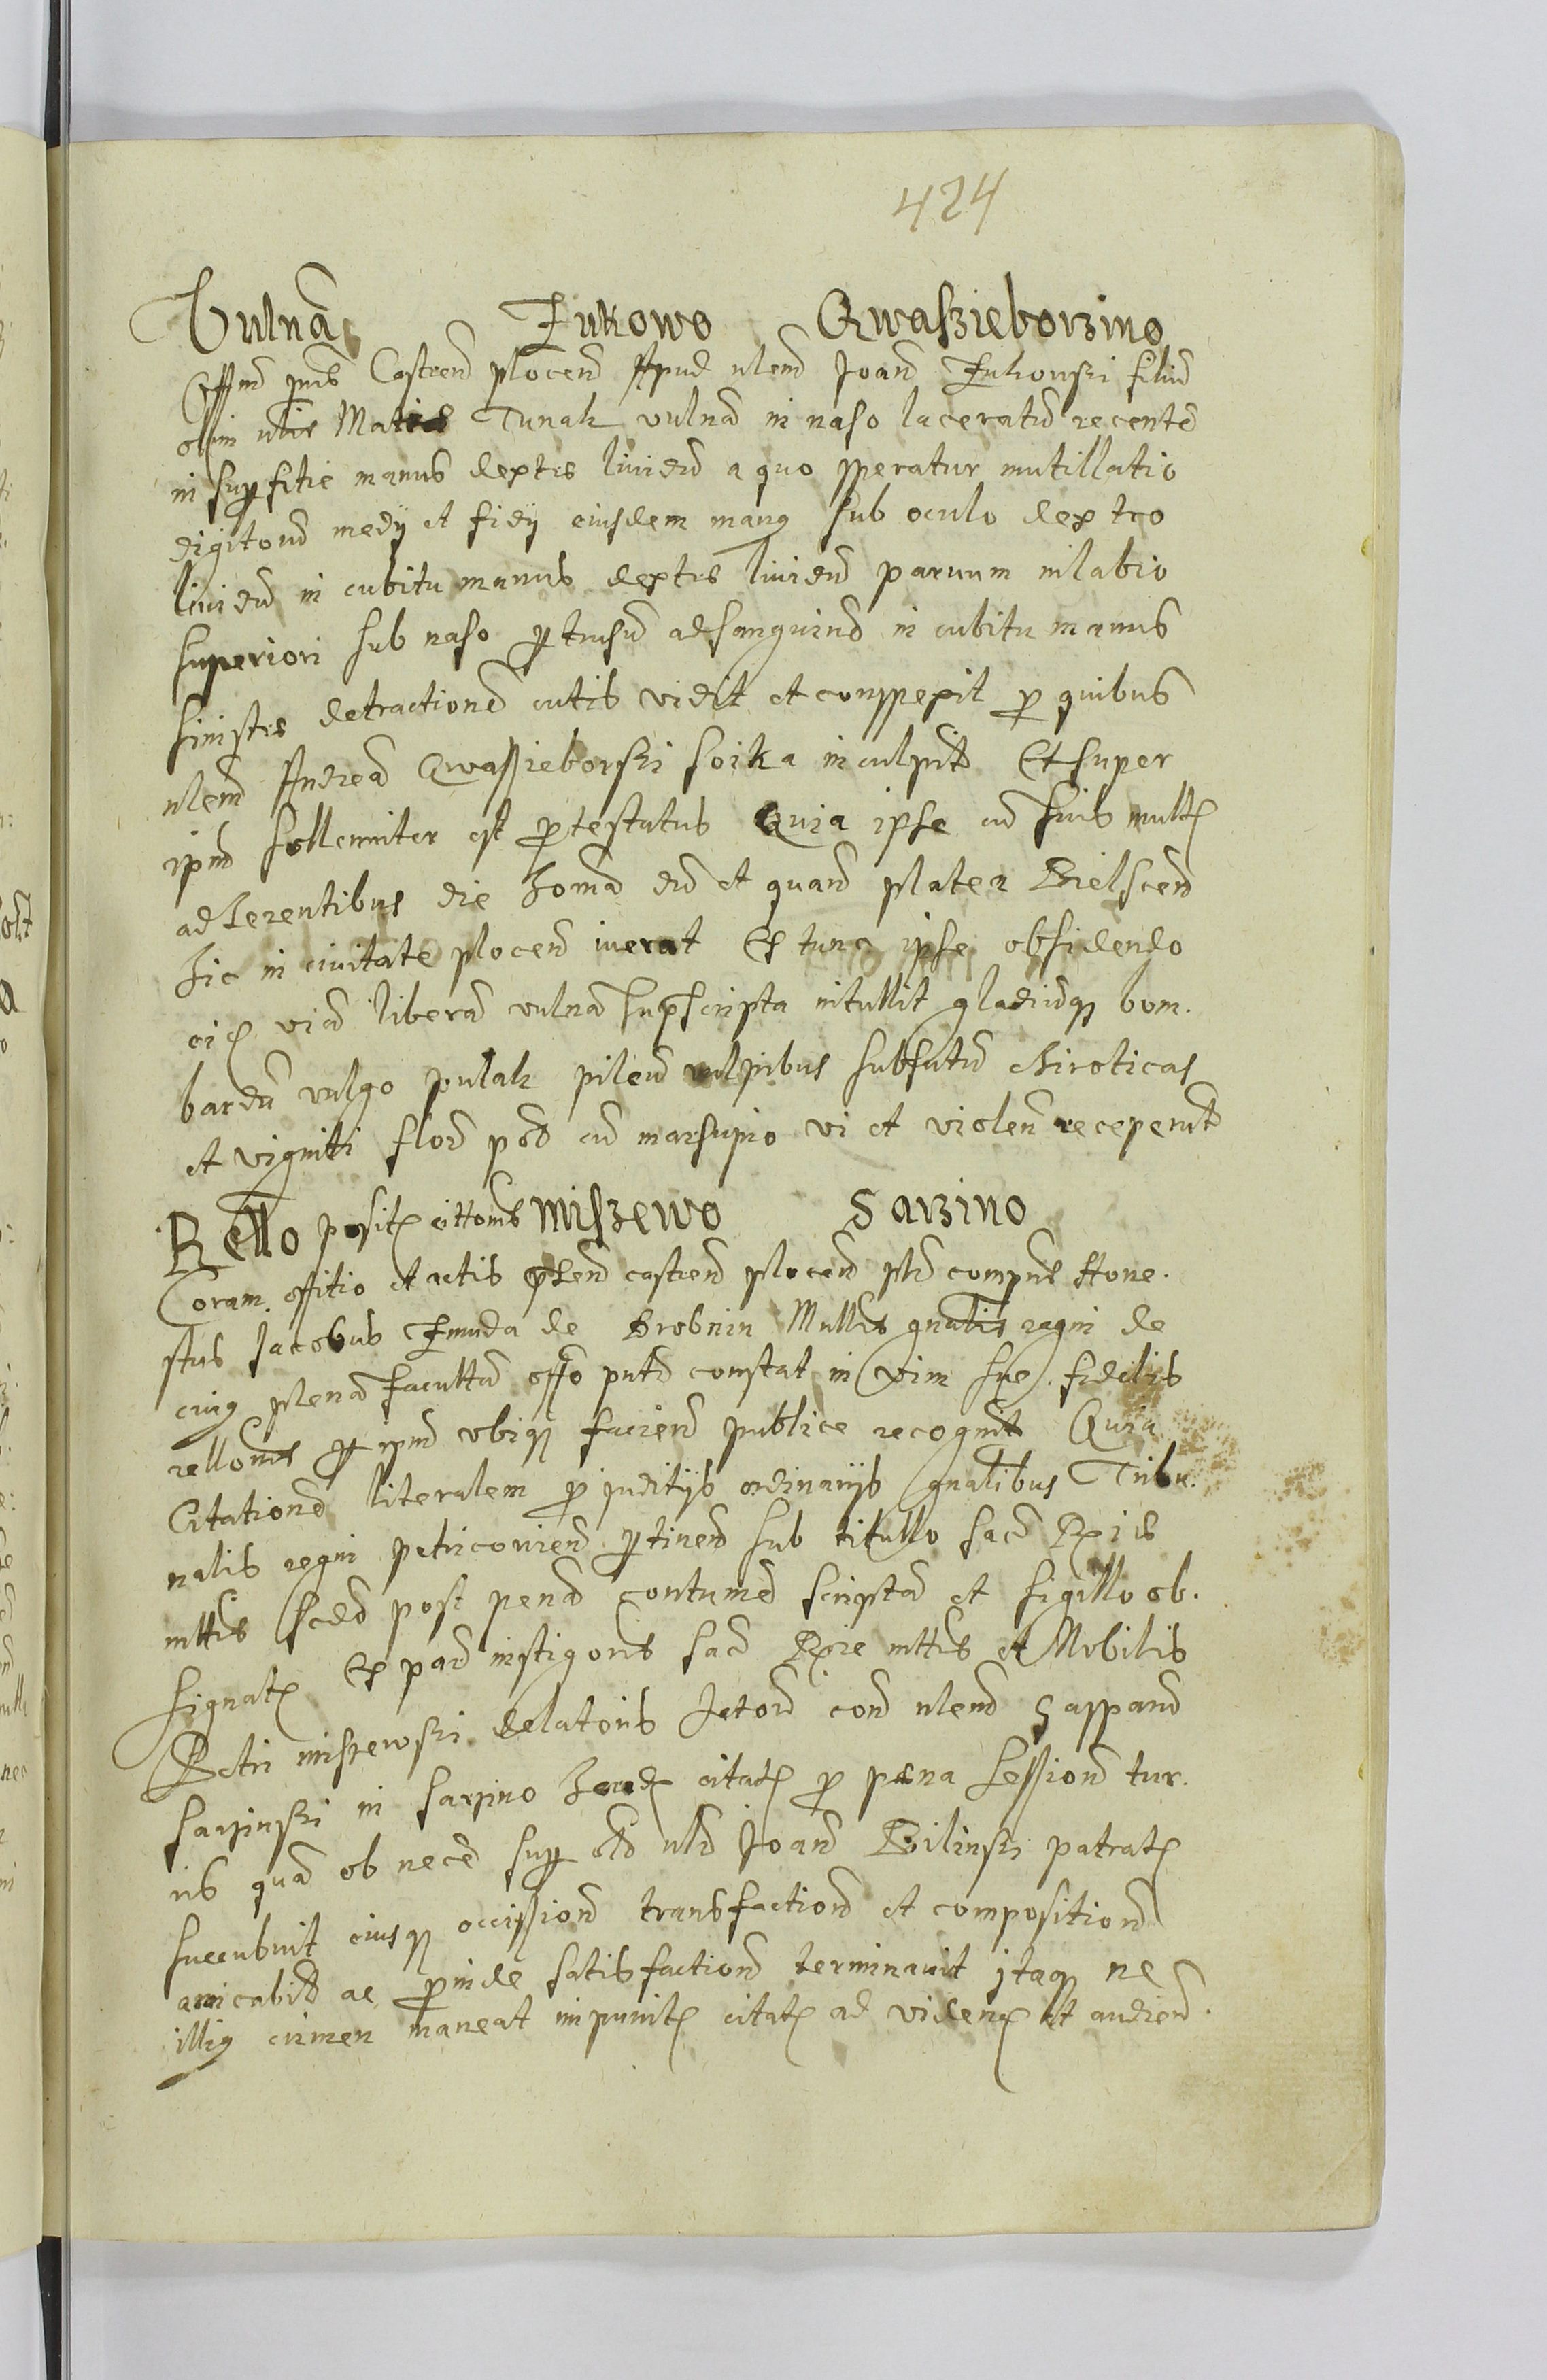 424
Vulna Żukowo Qwaszieborzino
Offm pns Castren plocen Apud nlem Joan Żukowski filiu
olim nlis Matie Tunak vulna in naso laceratu recente
in supfitie manus dextre liuidu a quo speratur mutillatio
digitoru medij et fidij eiusdem manus sub oculo dextro
liuidu in cubitu manus dextre liuidu paruum in labio
superiori sub naso ptusu ad sanguine in cubitu manus
sinistre detractione cutis vidit et conspexit p quibus
nlem Andrea Qwassieborski soika inculpuit Et super
ipm sollenniter est ptestatus Quia ipse cu suis mult
adherentibus die
hic in ciuitate plocen iuerat Et tunc ipse obsidendo
ei via libera vulna supscripta intullit gladiuq bom.
bardu vulgo pulak pileu vulpibus subfutu chiroticas
et viginti flor pod cu marsupio vi et violen receperut
Rello posit cittonis Miszewo Sarzino
Coram offitio et actis psen castren plocen psl compns Hone.
stus Jacobus Żmuda de Drobnin Mstlis gnalis regni de
cuius plena facultu offo putd constat in vim sue fidelis
rellonis p ipm vbiq facien publice recognit Quia
Citatione literalem p juditijs ordinarijs gnalibus Tribu.
nalis regni petricouien ptinen sub titullo sac Rgie
mttis sced post pena contume scripta et sigillo ob.
signat Ex par instigoris sac Rgie mttis et Nobilis
Petri miszewski delatoris Actor con nlem Sappand
sarzinski in sarzino citat p pena session tur.
ris qua ob nece sup old nld Joan Bilinski patrat
succubuit eiusq occission transfaction et composition
amicabil ac pinde satisfaction terminauit jtaq ne
illius crimen maneat impunit citat ad viden et audien.